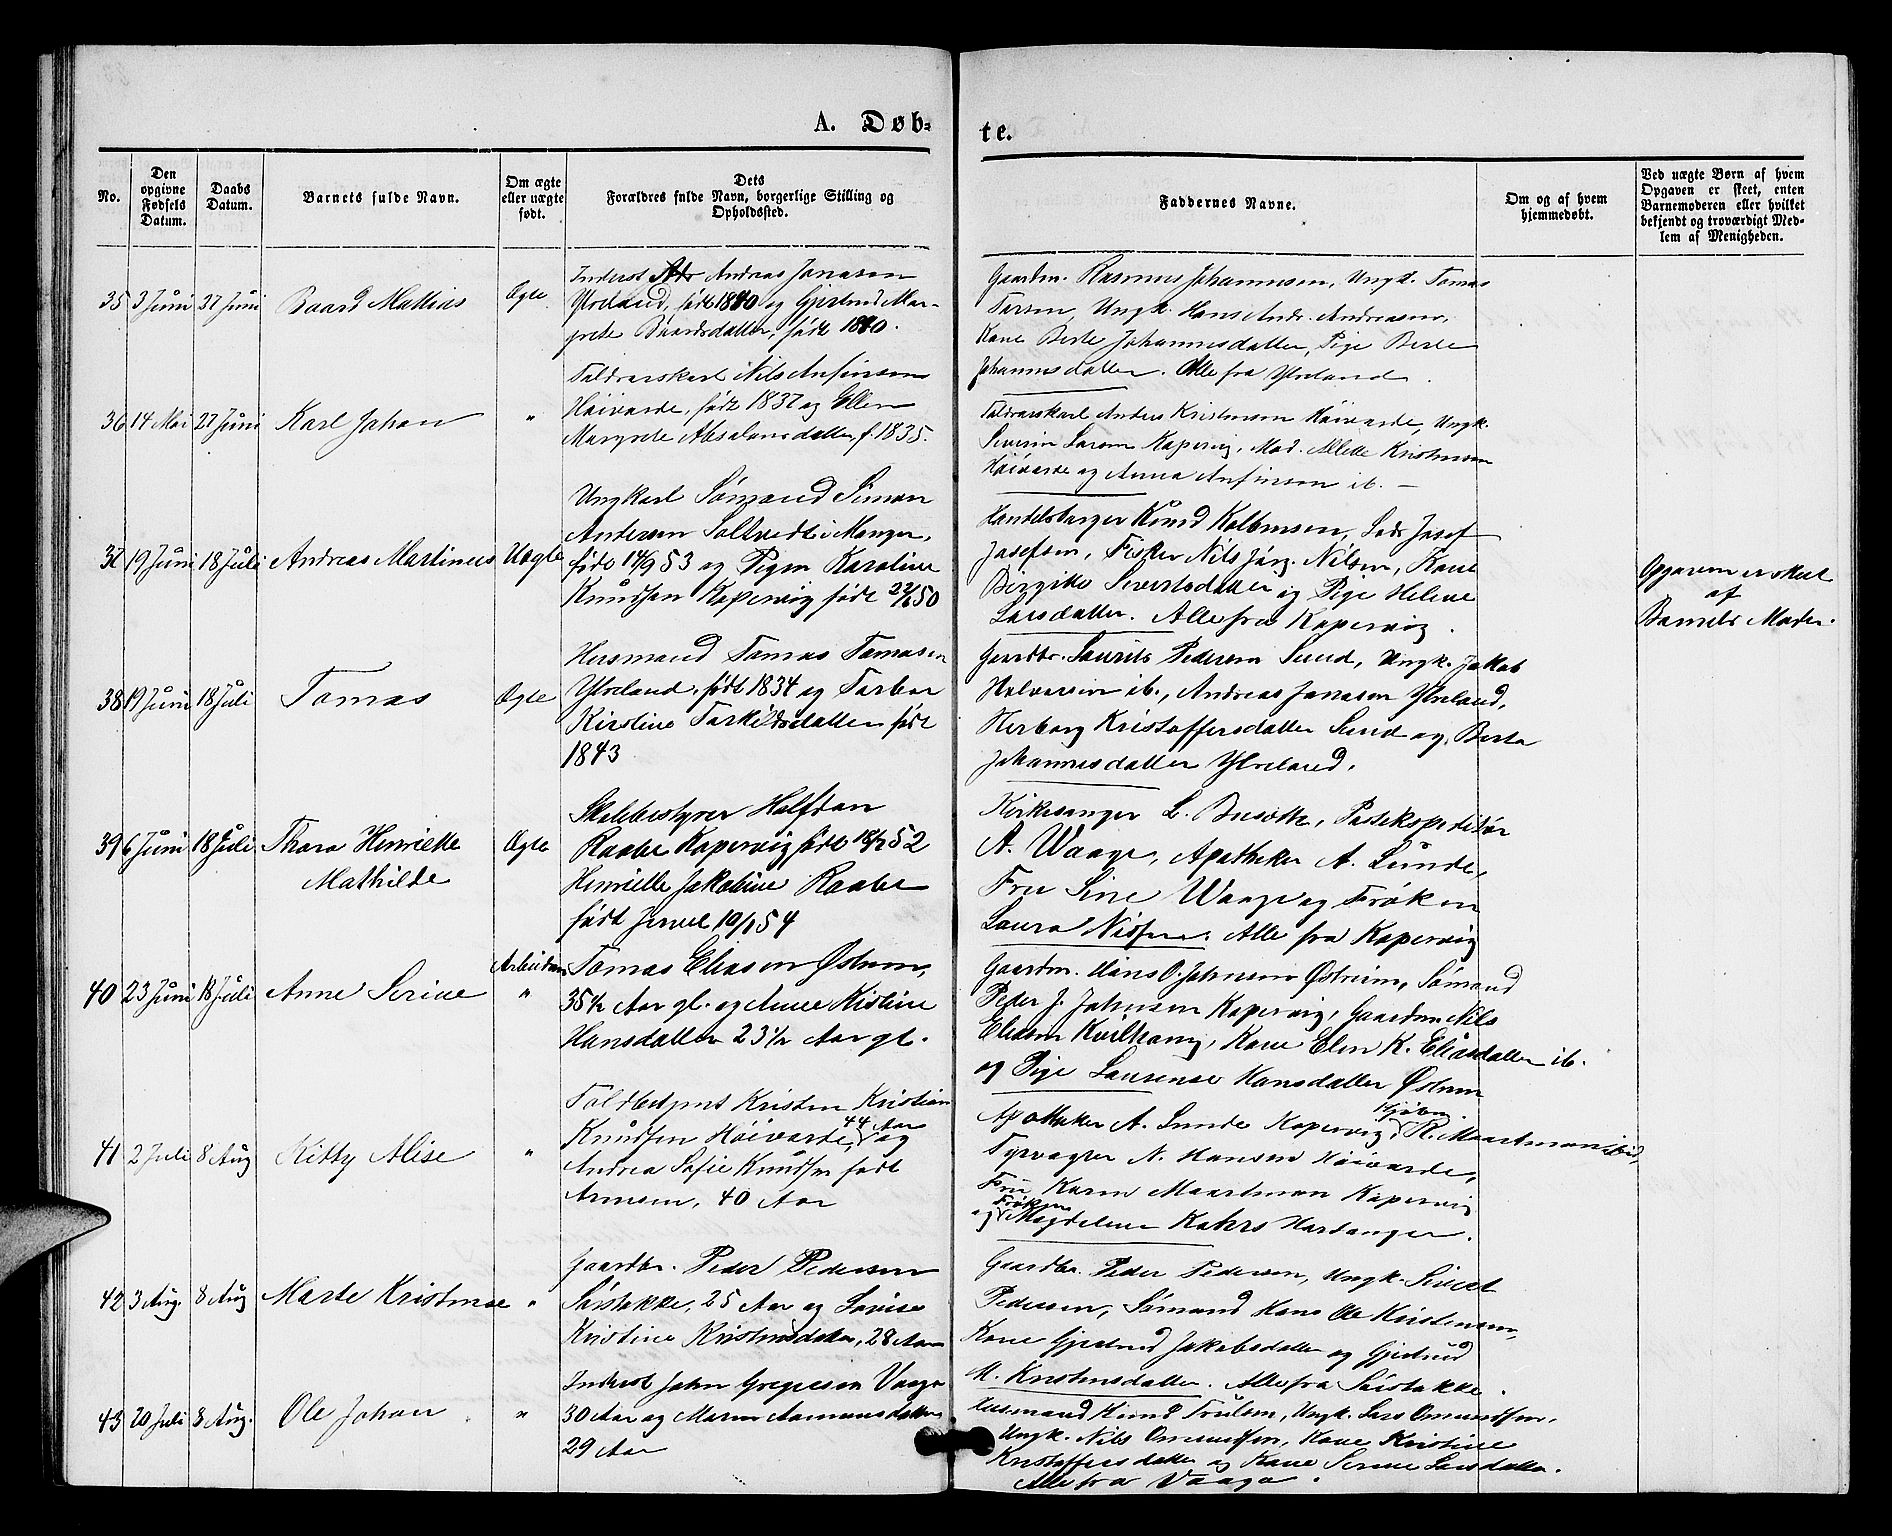 A. Døb-
te.
No.
Den
opgivne
Fødsels
Datum.
Daabs
Datum.
Barnets fulde Navn.
Om ægte
eller uægte
født.
Dets
Forældres fulde Navn, borgerlige Stilling og
Opholdssted.
Faddernes Navne.
Om og af hvem
hjemmedøbt.
Ved uægte Børn af hvem
Opgaven er skeet, enten
Barnemoderen eller hvilket
bekjendt og troværdigt Med-
lem af Menigheden.
35 3 Juni 27 Juni Baard Mathias Ægte
Inderst Andreas Jonasen
Ytreland, født 1840 og Gjertrud Mar-
grete Baardsdatter, født 1840.
Gaardm. Rasmus Johannesen, Ungk. Tomas
Larsen, Ungk. Hans Andr. Andreasen,
Kone Berte Johannesdatter, Pige Berte
Johannesdatter. Alle fra Ytreland.
36 14 Mai 27 Juni Karl Johan "
Toldrorskarl Nils Anfinsen
Høivarde, født 1837 og Ellen
Margrete Absalonsdatter f. 1835.
Toldrorskarl Anders Kristensen Høivarde, Ungk.
Severin Larsen Kopervig, Mad. Allette Kristensen
Høivarde og Anna Anfinsen ib. —
37 19 Juni 18 Juli Andreas Martinus Uægte
Ungkarl Sømand Simon
Andersen Soltvedt i Manger,
født 14/9 53 og Pigen Karoline
Knudsen Kopervig født 22/6 50
Handelsborger Knud Kolbensen, Lods Josef
Josefsen, Fisker Nils Jørg. Nilsen, Kone
Birgitte Sivertsdatter og Pige Helene
Larsdatter. Alle fra Kopervig.
Opgaven er skeet
af
Barnets Moder.
38 19 Juni 18 Juli Tomas Ægte
Husmand Tomas Tomasen
Ytreland, født 1834 og Torbor
Kirstine Torkildsdatter født
1843
Gaardbr. Laurits Pedersen Sund, Ungk. Jakob
Halvorsen ib., Andreas Jonasen Ytreland,
Herborg Kristoffersdatter Sund og Berta
Johannesdatter Ytreland.
39 6 Juni 18 Juli Thora Henriette
Mathilde Ægte
Skolebestyrer Halfdan
Raabe Kopervig født 18/2 52
Henriette Jakobine Raabe
født Juuel 10/1 54
Kirkesanger L. Postekspeditør
A. Waage, Apotheker A. Lunde,
Fru Sine Waage og Frøken
Laura Nissen. Alle fra Kopervig
40 23 Juni 18 Juli Anne Serine "
Arbeidsm. Tomas Eliasen Østrem,
35 1/2 Aar gl. og Anne Kistine
Hansdatter 23 1/2 Aar gl.
Gaardm. Hans O. Johnsen Østreim, Sømand
Peder J. Johnsen Kopervig, Gaardm Nils
Eliasen Kvilhaug, Kone Elen K. Eliasdatter ib.
og Pige Laurense Hansdatter Østrem
41 2 Juli 8 Aug Kitty Alise "
Toldbetjent Kristen Kristian
Knudsen Høivarde, 44 Aar og
Andrea Sofie Knudsen født
Arnesen, 40 Aar
Apotheker A. Lunde Kopervig, Kjøbm. R. Maartmann ibid,
Fyrvogter N. Hansen Høivarde,
Fru Karen Maartman Kopervig
og Frøken Magdelene Kahrs Hardanger.
42 3 Aug. 8 Aug Marte Kristense "
Gaardbr. Peder Pedersen
Sørstokke, 25 Aar og Lovise
Kristine Kristensdatter, 28 Aar
Gaardbr. Peder Pedersen, Ungk. Sivert
Pedersen, Sømand Hans Ole Kristensen,
Kone Gjertrud Jakobsdatter og Gjertrud
M. Kristensdatter. Alle fra Sørstokke.
43 20 Juli 8 Aug. Ole Johan "
Inderst John Gregersen Vaage
30 Aar og Maren Aamundsdatter
29 Aar
Husmand Knud Trulsen, Ungk. Lars Omundsen,
Ungk. Nils Omundsen, Kone Kristine
Kristoffersdatter og Kone Serine Larsdatter.
Alle fra Vaage.